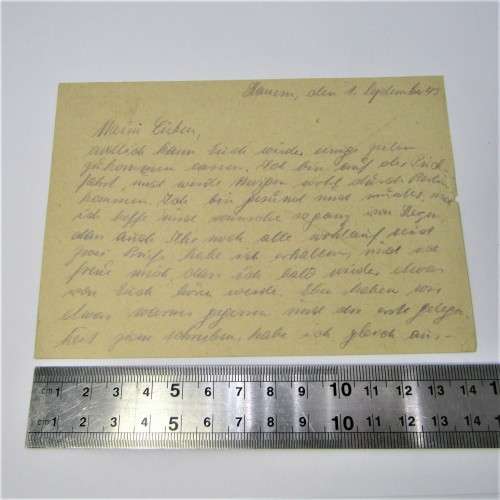 den 1. September 43
Meine Lieben,
endlich kann Euch wieder einige Zeilen
zukommen lassen. Ich bin auf der Rück
fahrt, und werde morgen wohl durch Berlin
kommen. Ich bin gesund und munter, und
ich hoffe und wünsche so ganz von Herzen
dass auch Ihr noch alle wohlauf seid
zwei Briefe habe ich erhalten, und ich
freue mich, dass ich bald wieder etwas
von Euch höre werde. Eben haben wir
etwas warmes gegessen und die erste Gelegen
heit zum schreiben, habe ich gleich aus-
cm 1 2 3 4 5 6 7 8 9 10 11 12 13 14
cm 1 2 3 4 5 6 7 8 9 10 11 12 13 14